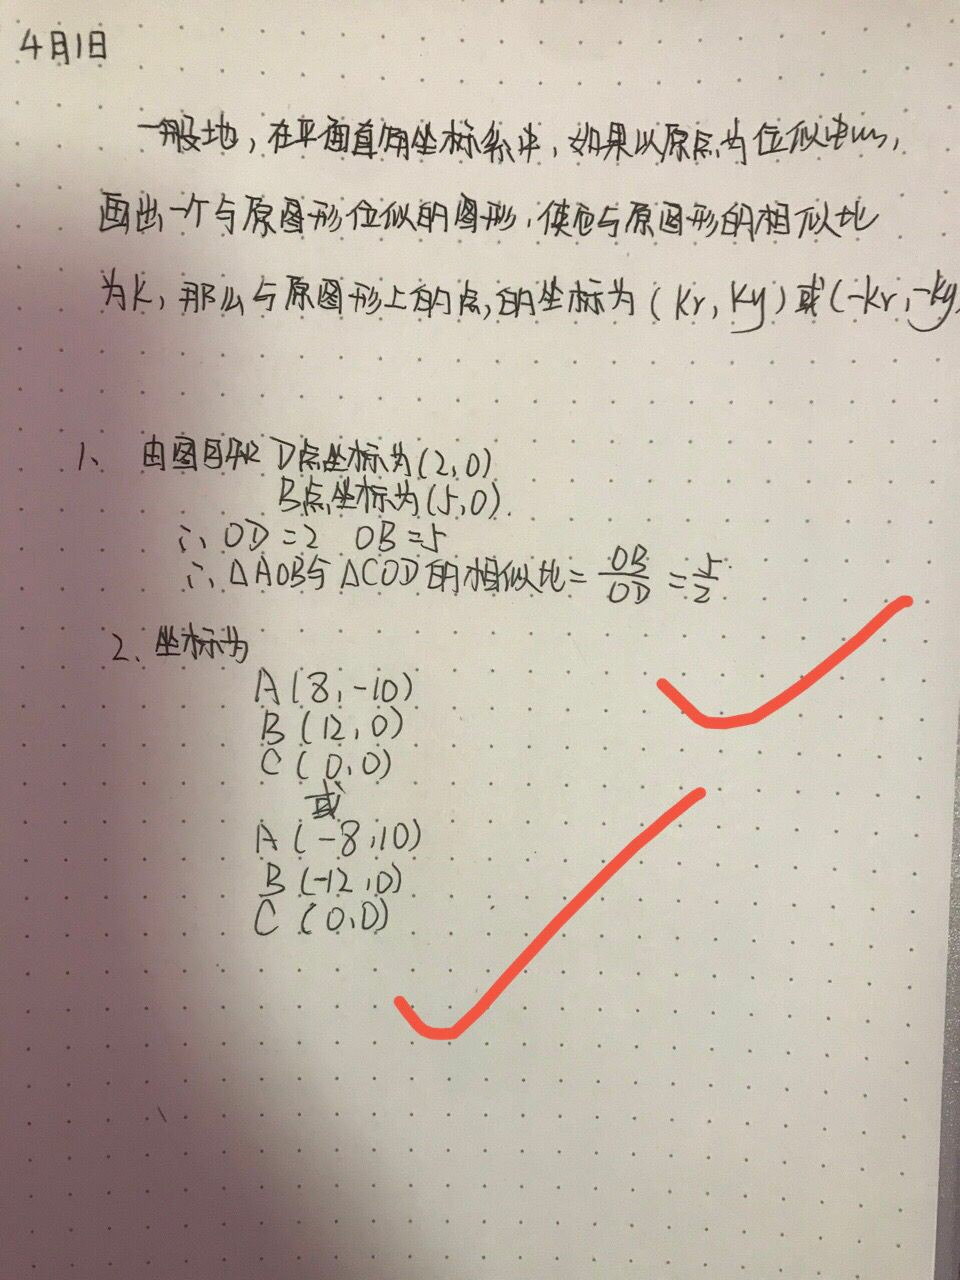 4月1日
一般地,在平面直角坐标系中,如果以原点为位似中心,
画出一个与原图形位似的图形,使它与原图形的相似比
为K,那么与原图形上的点,的坐标为(Kr,Ky)或(-Kr,-Ky
1、由图可取D点坐标为(2,0)
B点坐标为(5,0).
∴OD=2 OB=5
∴△AOB与△COD的相似比=OB/OD=5/2
2、坐标为
A(8,-10)
B(12,0)
C(0,0)
或
A(-8,10)
B(-12,0)
C(0,0)